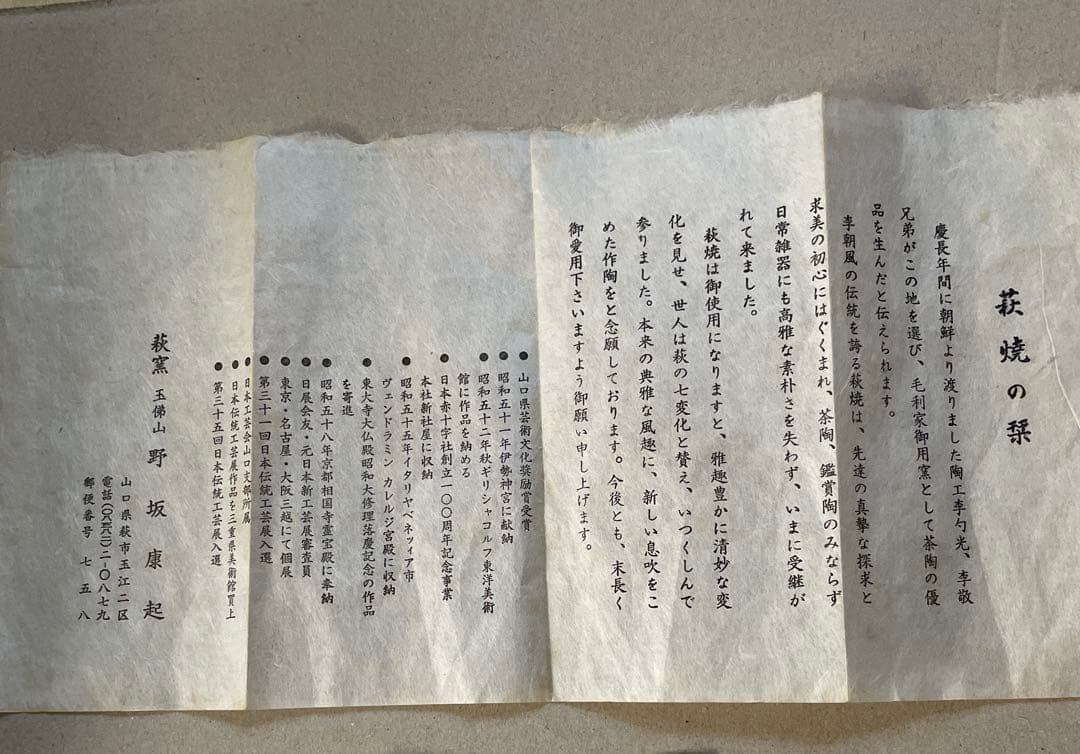 萩焼の栞
慶長年間に朝鮮より渡りました陶工李勺光、李敬
兄弟がこの地を選び、毛利家御用窯として茶陶の優
品を生んだと伝えられます。
李朝風の伝統を誇る萩焼は、先達の真摯な探求と
求美の初心にはぐくまれ、茶陶、鑑賞陶のみならず
日常雑器にも高雅な素朴さを失わず、いまに受継が
れて来ました。
萩焼は御使用になりますと、雅趣豊かに清妙な変
化を見せ、世人は萩の七変化と賛え、いつくしんで
参りました。本来の典雅な風趣に、新しい息吹をこ
めた作陶をと念願しております。今後とも、末長く
御愛用下さいますよう御願い申し上げます。
●山口県芸術文化奨励賞受賞
●昭和五十一年伊勢神宮に献納
●昭和五十二年秋ギリシャコルフ東洋美術
館に作品を納める
●日本赤十字社創立一〇〇周年記念事業
本社新社屋に収納
●昭和五十五年イタリヤベネッィア市
ヴェンドラミン カレルジ宮殿に収納
●東大寺大仏殿昭和大修理落慶記念の作品
を寄進
●昭和五十八年京都相国寺霊宝殿に奉納
●日展会友・元日本新工芸展審査員
●東京・名古屋・大阪三越にて個展
●第三十一回日本伝統工芸展入選
●日本工芸会山口支部所属
●日本伝統工芸展作品を三重県美術館買上
●第三十五回日本伝統工芸展入選
萩窯 玉佛山 野坂康起
山口県萩市玉江二区
電話(〇八三八二)二-〇八七九
郵便番号 七五八